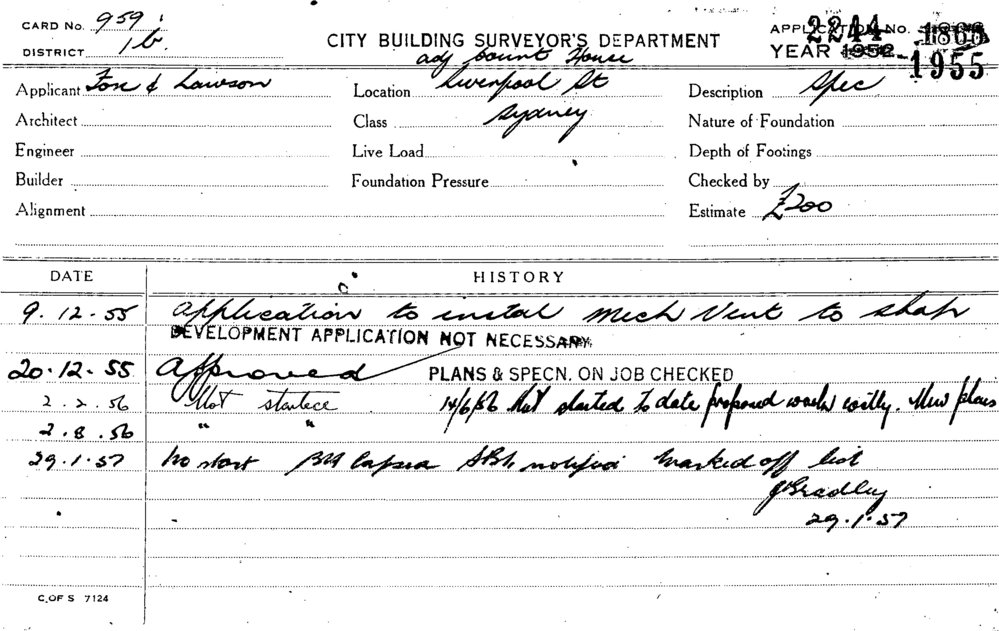 CARD No. 959
DISTRICT 1b.
CITY BUILDING SURVEYOR'S DEPARTMENT
APPLICATION No. 2244 1866
YEAR 1952 1955
adj Court House
Applicant Fox & Lawson
Location Liverpool St
Description Spec
Architect
Class Sydney
Nature of Foundation
Engineer
Live Load
Depth of Footings
Builder
Foundation Pressure
Checked by
Alignment
Estimate £200
DATE
HISTORY
9.12.55 Application to instal Mech Vent to shop
DEVELOPMENT APPLICATION NOT NECESSARY.
20.12.55 Approved PLANS & SPECN. ON JOB CHECKED
2.2.56 Not started 14/6/56 Not started to date proposed New plans
2.8.56 " "
29.1.57 No start notified Marked off list
J Bradley
29.1.57
C. OF S 7124